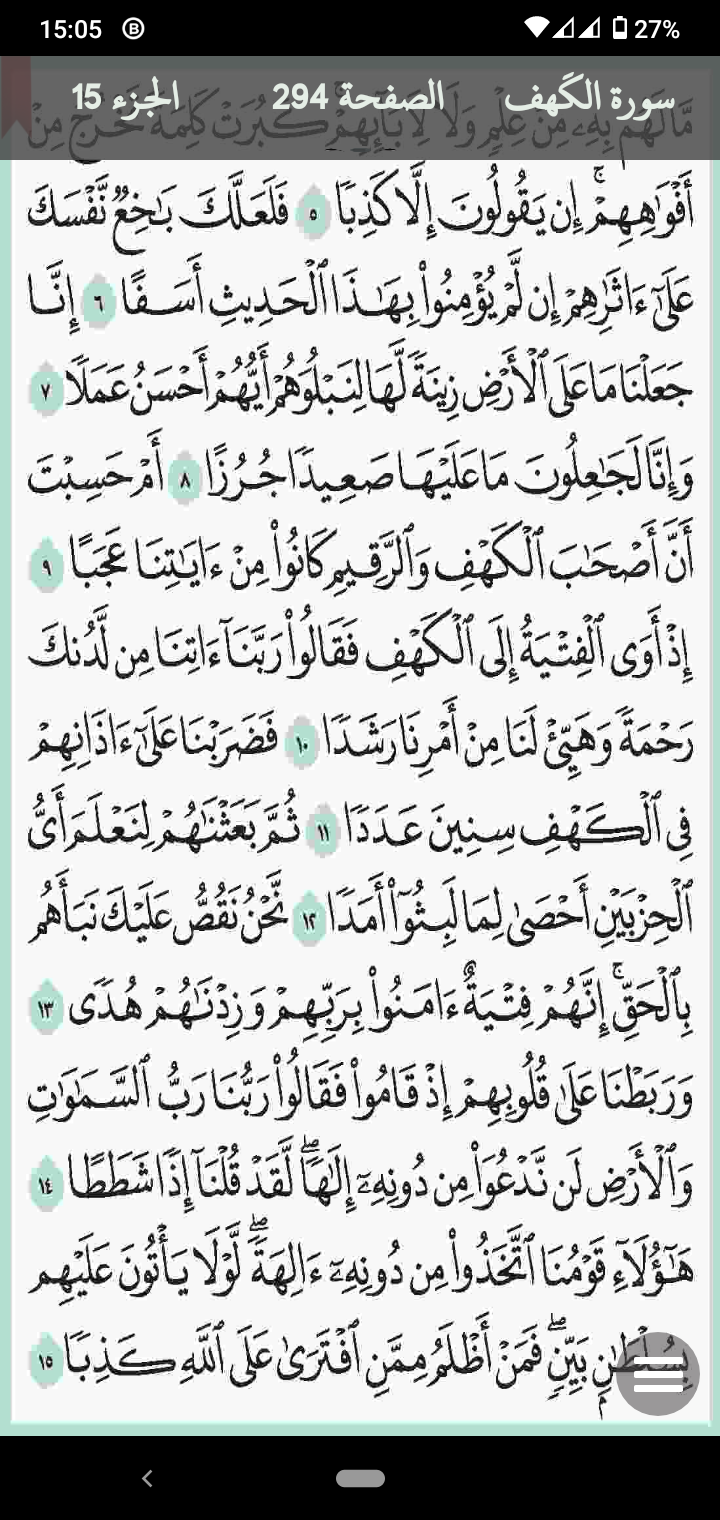 15:05 B 27%
سورة الكَهف الصفحة 294 الجزء 15
مَّا لَهُم بِهِۦ مِنْ عِلْمٍ وَلَا لِـَٔابَآئِهِمْ ۚ كَبُرَتْ كَلِمَةً تَخْرُجُ مِنْ
أَفْوَٰهِهِمْ ۚ إِن يَقُولُونَ إِلَّا كَذِبًا ٥ فَلَعَلَّكَ بَٰخِعٌ نَّفْسَكَ
عَلَىٰٓ ءَاثَٰرِهِمْ إِن لَّمْ يُؤْمِنُوا۟ بِهَٰذَا ٱلْحَدِيثِ أَسَفًا ٦ إِنَّا
جَعَلْنَا مَا عَلَى ٱلْأَرْضِ زِينَةً لَّهَا لِنَبْلُوَهُمْ أَيُّهُمْ أَحْسَنُ عَمَلًا ٧
وَإِنَّا لَجَٰعِلُونَ مَا عَلَيْهَا صَعِيدًا جُرُزًا ٨ أَمْ حَسِبْتَ
أَنَّ أَصْحَٰبَ ٱلْكَهْفِ وَٱلرَّقِيمِ كَانُوا۟ مِنْ ءَايَٰتِنَا عَجَبًا ٩
إِذْ أَوَى ٱلْفِتْيَةُ إِلَى ٱلْكَهْفِ فَقَالُوا۟ رَبَّنَآ ءَاتِنَا مِن لَّدُنكَ
رَحْمَةً وَهَيِّئْ لَنَا مِنْ أَمْرِنَا رَشَدًا ١٠ فَضَرَبْنَا عَلَىٰٓ ءَاذَانِهِمْ
فِى ٱلْكَهْفِ سِنِينَ عَدَدًا ١١ ثُمَّ بَعَثْنَٰهُمْ لِنَعْلَمَ أَىُّ
ٱلْحِزْبَيْنِ أَحْصَىٰ لِمَا لَبِثُوٓا۟ أَمَدًا ١٢ نَّحْنُ نَقُصُّ عَلَيْكَ نَبَأَهُم
بِٱلْحَقِّ ۚ إِنَّهُمْ فِتْيَةٌ ءَامَنُوا۟ بِرَبِّهِمْ وَزِدْنَٰهُمْ هُدًى ١٣
وَرَبَطْنَا عَلَىٰ قُلُوبِهِمْ إِذْ قَامُوا۟ فَقَالُوا۟ رَبُّنَا رَبُّ ٱلسَّمَٰوَٰتِ
وَٱلْأَرْضِ لَن نَّدْعُوَا۟ مِن دُونِهِۦٓ إِلَٰهًا ۖ لَّقَدْ قُلْنَآ إِذًا شَطَطًا ١٤
هَٰٓؤُلَآءِ قَوْمُنَا ٱتَّخَذُوا۟ مِن دُونِهِۦٓ ءَالِهَةً ۖ لَّوْلَا يَأْتُونَ عَلَيْهِم
بِسُلْطَٰنٍۭ بَيِّنٍ ۖ فَمَنْ أَظْلَمُ مِمَّنِ ٱفْتَرَىٰ عَلَى ٱللَّهِ كَذِبًا ١٥